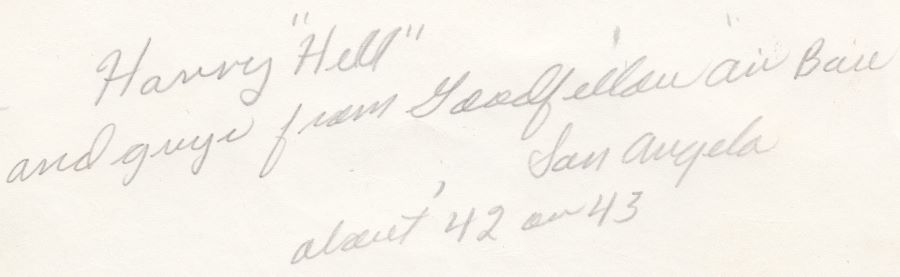 Harvey "Hell"
and guys from Goodfellow air Base
San Angelo
about '42 or 43